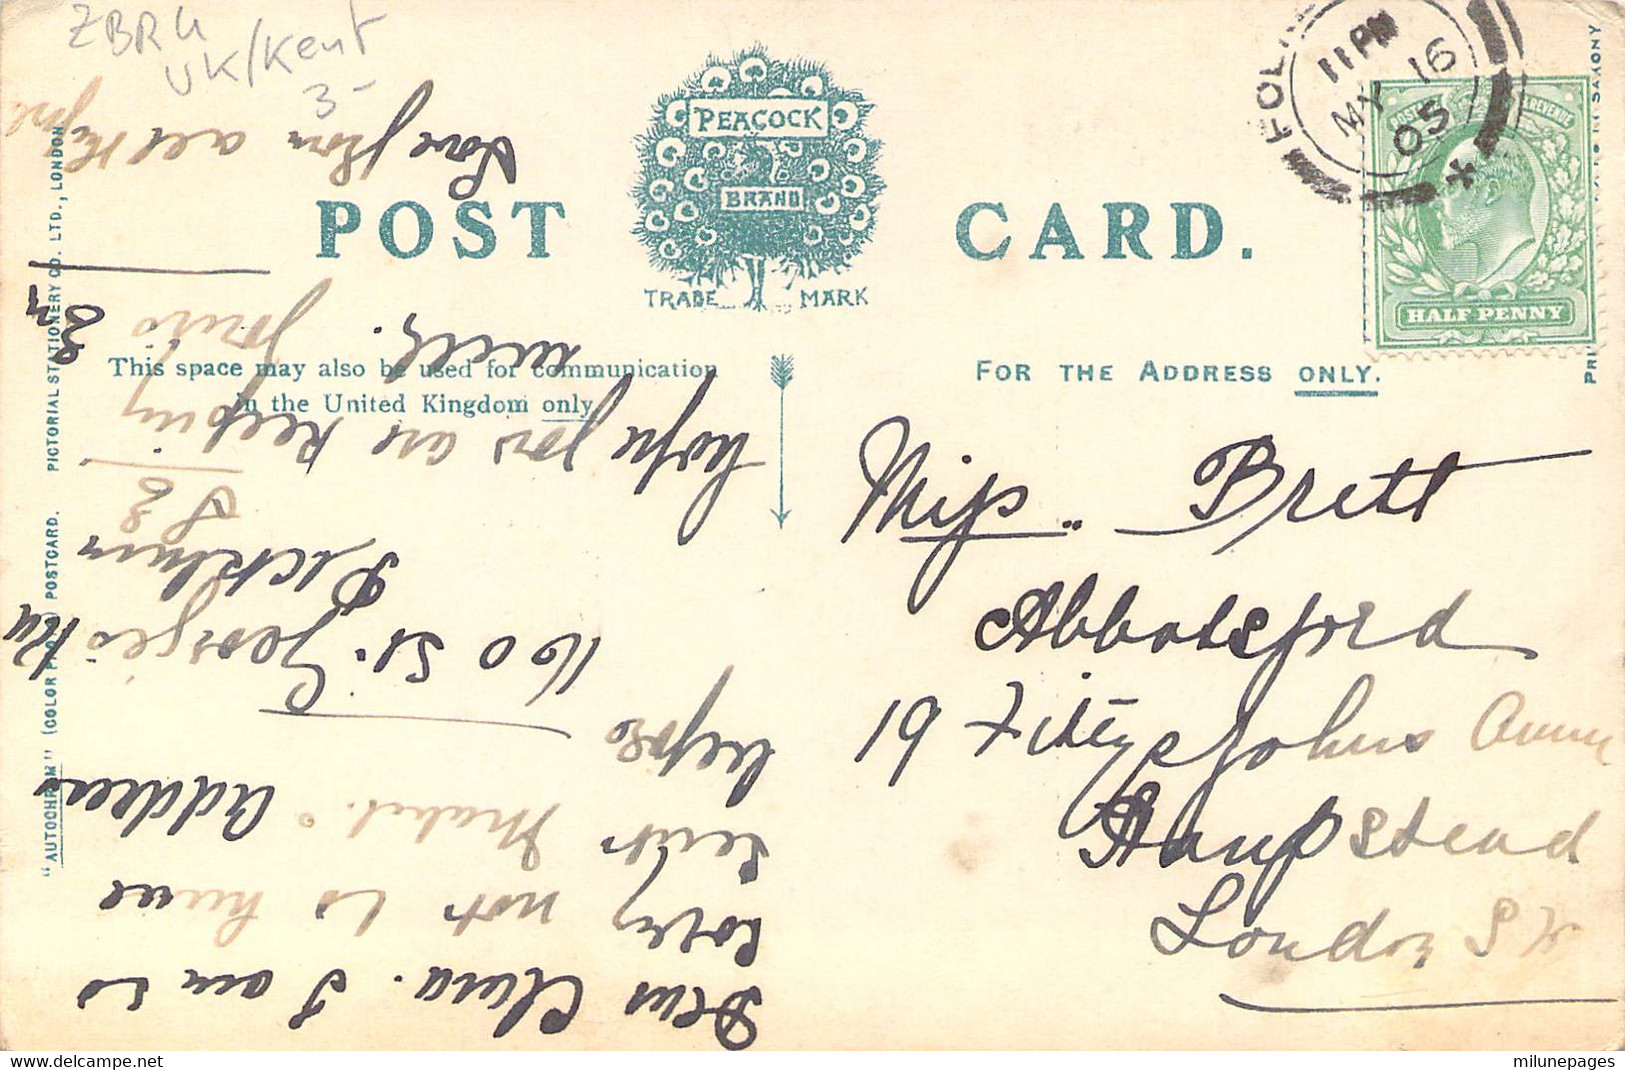 ZBRU
UK/Kent
3-
PEACOCK
BRAND
TRADE MARK
POST CARD.
This space may also be used for communication
in the United Kingdom only
FOR THE ADDRESS ONLY.
FOL
11 PM
MY 16
05
HALF PENNY
Miss Brett
Abbotsford
19 Fitzjohns
Hampstead
London
Dear Clara. I am so
sorry not to have
sent before
Mabel's address
160 St. George's Rd
Peckham
S E
Hope you are keeping
well. yours
Love from all
"AUTOCHROM" (COLOR PHOTO) POSTCARD. PICTORIAL STATIONERY CO. LTD., LONDON
SAXONY
milunepages